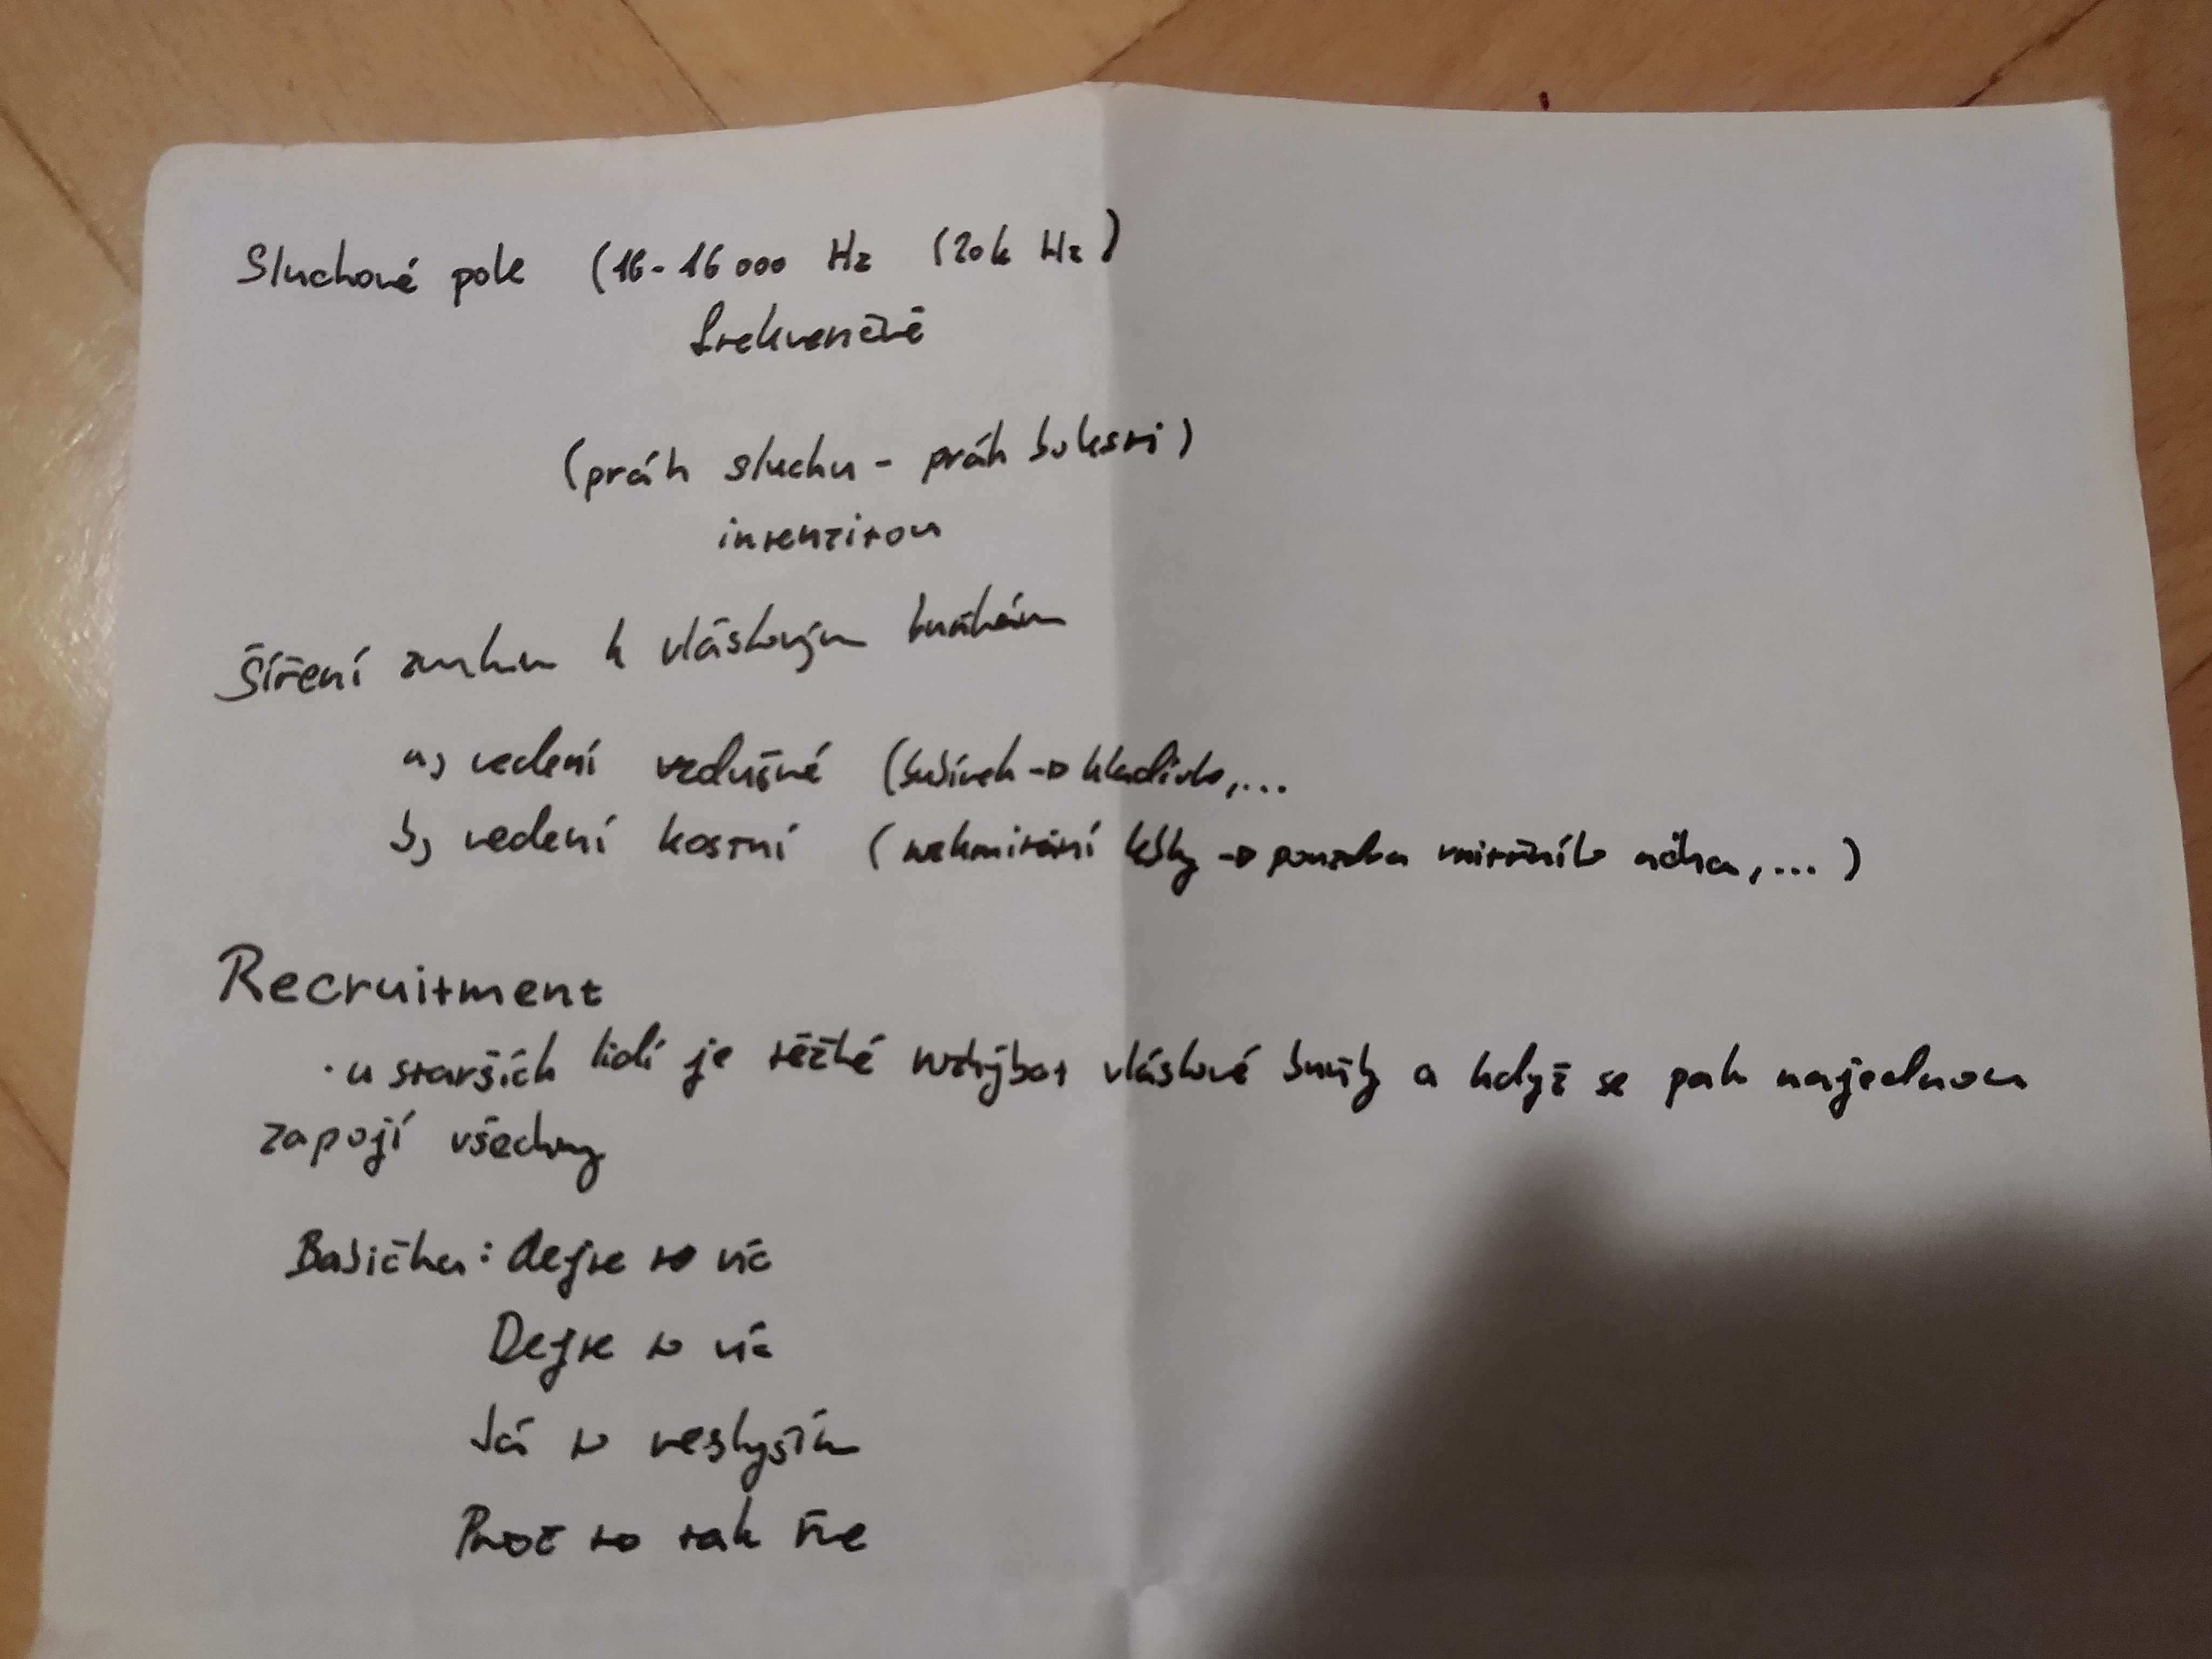 Sluchové pole (16-16 000 Hz (20k Hz)
frekvenčně
(práh sluchu - práh bolesti)
intenzitou
Šíření zvuku k vláskovým buňkám
a) vedení vzdušné (bubínek → kladívko,...
b) vedení kostní (rozkmitání lebky → pouzdra vnitřního ucha,...)
Recruitment
· u starších lidí je těžké rozhýbat vláskové buňky a když se pak najednou
zapojí všechny
Babička: dejte to víc
Dejte to víc
Já to neslyším
Proč to tak řve